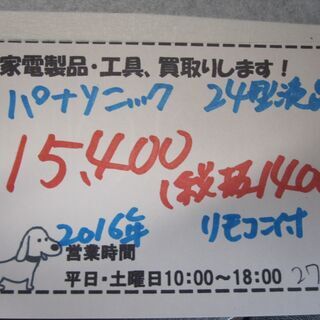 家電製品・工具、買取りします！
パナソニック 24型液晶
15,400
(税抜1400
2016年 リモコン付
営業時間
平日・土曜日10:00〜18:00 27